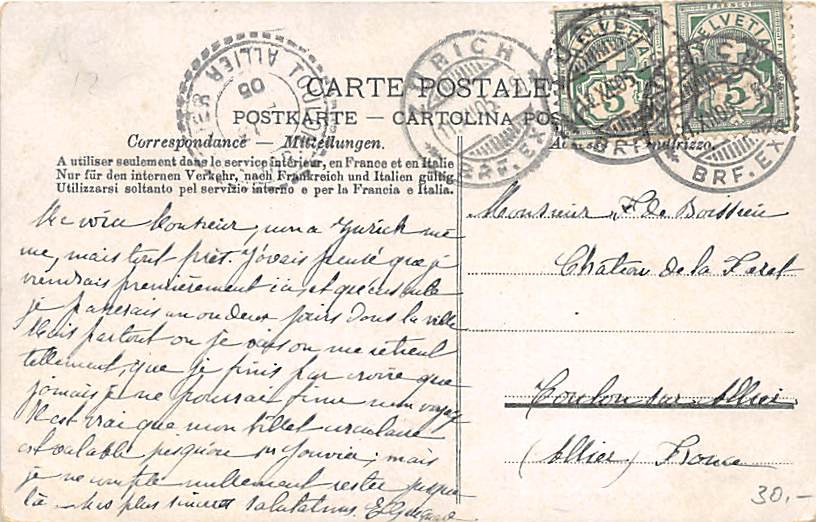 HELVETIA HELVETIA
FRANCO
5 5
ZÜRICH
BRF. EX
BRF. EX
TOULON S ALLIER
05
12
CARTE POSTALE
POSTKARTE — CARTOLINA POS
Correspondance — Mitteilungen.
A utiliser seulement dans le service intérieur, en France et en Italie
Nur für den internen Verkehr, nach Frankreich und Italien gültig
Utilizzarsi soltanto pel servizio interno e per la Francia e Italia.
Me voici Monsieur, non a Zurich mê
me, mais tout près. J'avais pensé que je
viendrais premièrement ici, et que ensuite
je passerais un ou deux jours dans la ville
Mais partout ou je vais on me retient
tellement, que je finis par croire que
jamais je ne pourrai finir mon voyage
Il est vrai que mon billet circulaire
est valable jusqu'en Janvier; mais
je ne compte nullement rester jusque
là. Mes plus sincères salutations.
Monsieur de Boissieu
Château de la Foret
Toulon sur Allier
(Allier) France
30.-